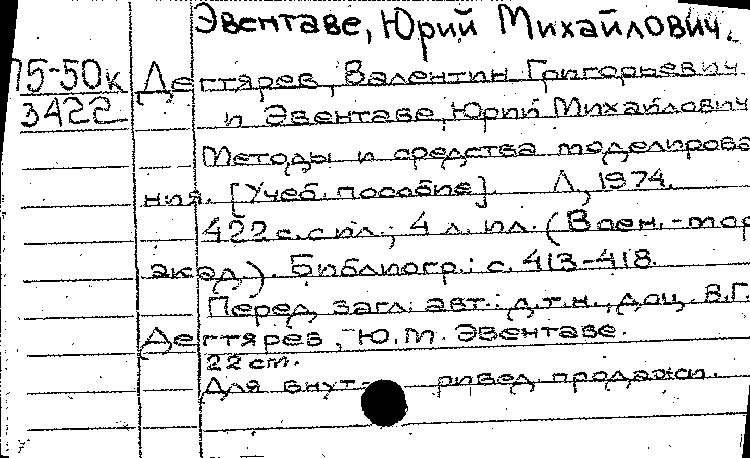 Эвентаве, Юрий Михайлович.
75-50к Дегтярев, Валентин Григорьевич
3422 и Эвентаве, Юрий Михайлович
Методы и средства моделирова
ния. [Учеб. пособие]. Л, 1974.
422 с. с ил.; 4 л. ил. (Воен.-мор
акад.). Библиогр.: с. 413-418.
Перед загл. авт.: д.т.н., доц. В.Г.
Дегтярев, Ю.М. Эвентаве.
22 см.
Для внут ривед. продажи.